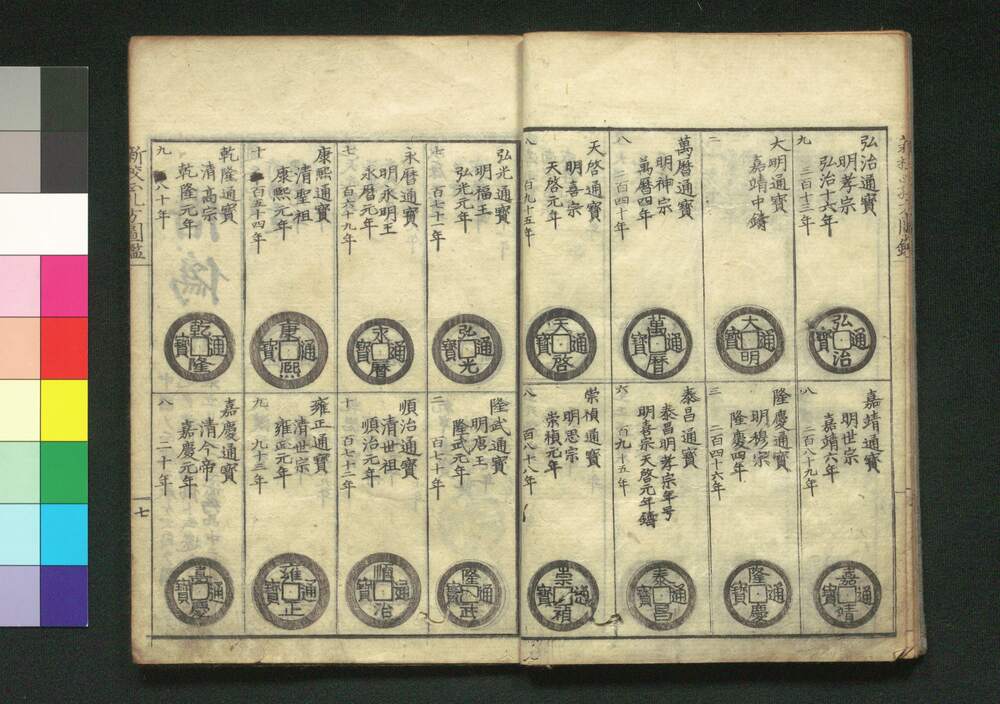 弘治通寳
明孝宗
弘治十六年
三百十三年
九
弘治通寳
大明通寳
嘉靖中鑄
二
大明通寳
萬暦通寳
明神宗
萬暦四年
二百四十年
八
萬暦通寳
天啓通寳
明喜宗
天啓元年
百九十五年
八
天啓通寳
嘉靖通寳
明世宗
嘉靖六年
二百八十九年
八
嘉靖通寳
隆慶通寳
明穆宗
隆慶四年
二百四十六年
三
隆慶通寳
泰昌通寳
泰昌明孝宗年号
明喜宗天啓元年鑄
百九十五年
六
泰昌通寳
崇禎通寳
明思宗
崇禎元年
百八十八年
八
崇禎通寳
弘光通寳
明福王
弘光元年
百七十一年
七
弘光通寳
永暦通寳
明永明王
永暦元年
百六十九年
七
永暦通寳
康熙通寳
清聖祖
康熙元年
百五十四年
十
康熙通寳
乾隆通寳
清高宗
乾隆元年
八十年
九
乾隆通寳
隆武通寳
明唐王
隆武元年
百七十年
二
隆武通寳
順治通寳
清世祖
順治元年
百七十二年
十
順治通寳
雍正通寳
清世宗
雍正元年
九十三年
九
雍正通寳
嘉慶通寳
清今帝
嘉慶元年
二十年
八
嘉慶通寳
七